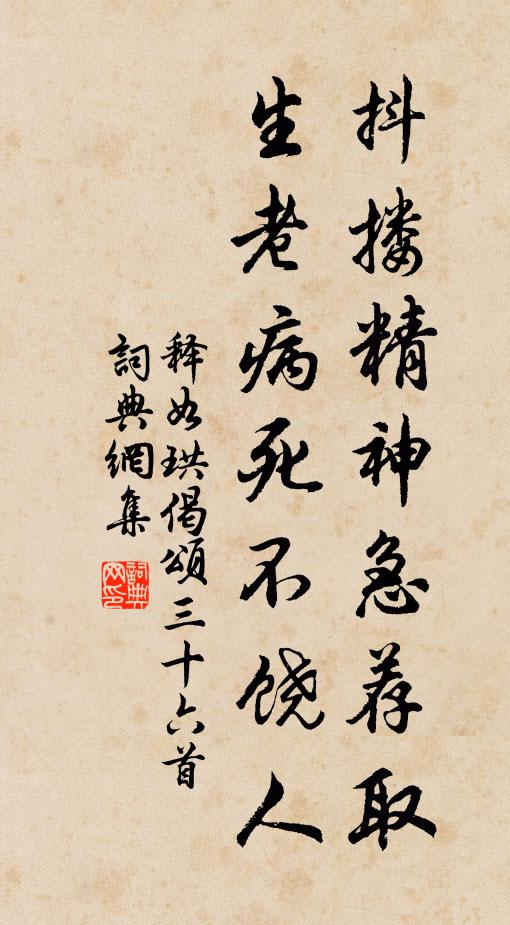 抖搂精神急荐取
生老病死不饶人
释如珙偈頌三十六首
詞典網集
詞典网印